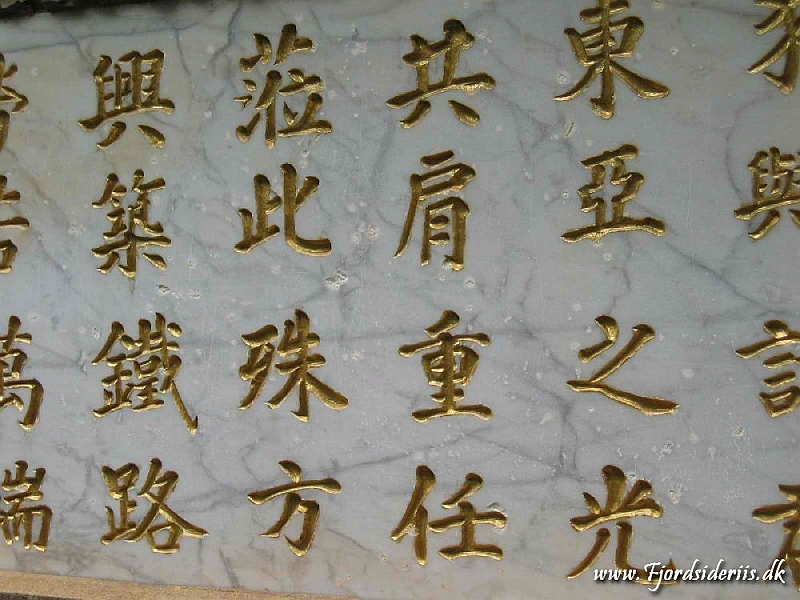 與
東亞之光
共肩重任
蒞此殊方
興築鐵路
勞苦萬端
www.Fjordsideriis.dk